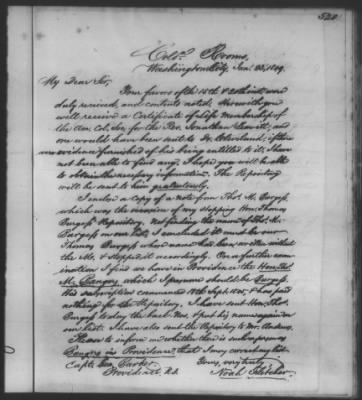 528
Colo. Rooms,
Washington City, Jan. 23, 1849.
My Dear Sir,
Your favors of the 15th & 20th inst were
duly received, and contents noted. Herewith you
will receive a Certificate of Life Membership of
the Am. Col. Soc. for the Rev. Jonathan Leavitt, and
one would have been sent to Mr. Cleveland, if there
was evidence furnished of his being entitled to it; I have
not been able to find any. I hope you will be able
to obtain the necessary information. The Repository
will be sent to him gratuitously.
I enclose a copy of a note from Thos. M. Burgess,
which was the occasion of my stopping Hon. Thomas
Burgess' Repository. Not finding the name of Thos. M.
Burgess on our list, I concluded it must be our
Thomas Burgess whose name had been written without
the M. & stopped it accordingly. On a further exa-
mination I find we have in Providence the Hon. Thos.
M. Bangs, which I presume should be Burgess.
His subscription commenced with
nothing for the Repository. I have sent Hon. Thos.
Burgess to day the back Nos. & put his name again on
our list. I have also sent the Repository to Mr.
Please to inform me whether there is such a person as
in Providence, that I may correct my list.
Yours, very truly,
Noah Fletcher.
Capt. Geo. Barker
Providence, R.I.